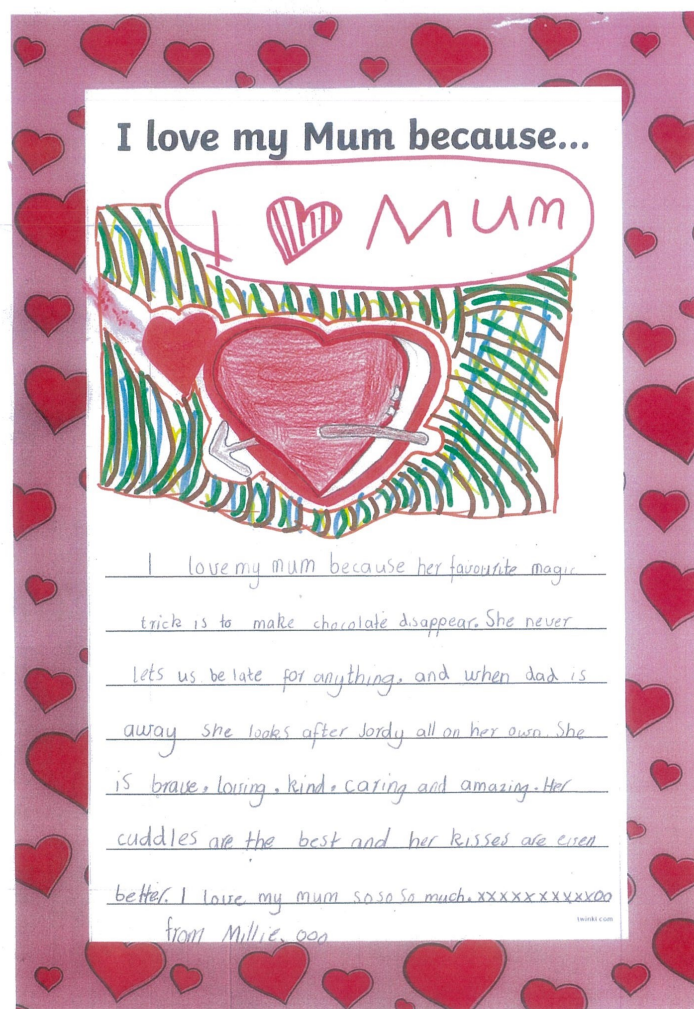 I love my Mum because...
I ♥ Mum
I love my mum because her favourite magic
trick is to make chocolate disappear. She never
lets us be late for anything. and when dad is
away she looks after Jordy all on her own. She
is brave, loving, kind, caring and amazing. Her
cuddles are the best and her kisses are even
better. I love my mum so so so much. xxxxxxxxxxxoo
twinkl.com
from Millie. ooo